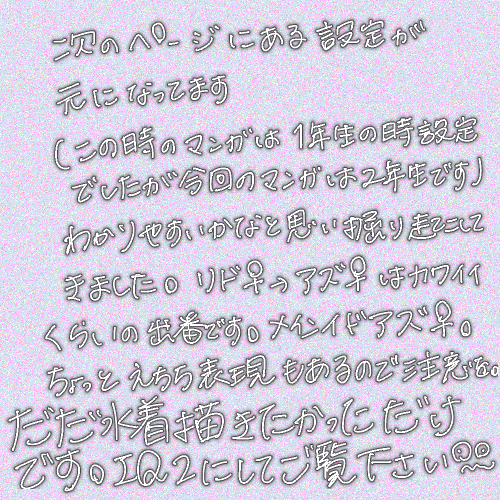 次のページにある設定が
元になってます
(この時のマンガは1年生の時設定
でしたが今回のマンガは2年生です)
わかりやすいかなと思い掘り起こして
きました。リド♀っアズ♀はカワイイ
くらいの出番です。メインイドアズ♀。
ちょっとえちち表現もあるので注意な。
ただ水着描きたかっただけ
です。IQ2にしてご覧下さい